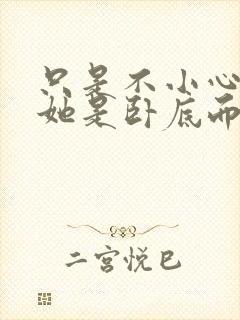 只是不小心
她是卧底而
二宫悦巳